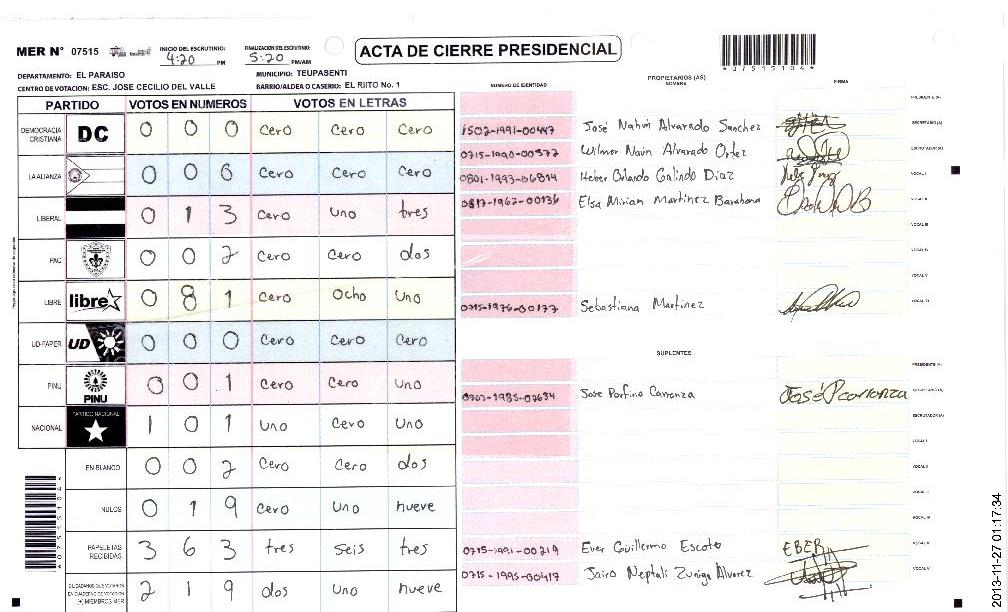 MER N° 07515 INICIO DEL ESCRUTINIO: 4:20 PM FINALIZACION DEL ESCRUTINIO: 5:20 PM/AM ACTA DE CIERRE PRESIDENCIAL
*07515104*
DEPARTAMENTO: EL PARAISO MUNICIPIO: TEUPASENTI
CENTRO DE VOTACION: ESC. JOSE CECILIO DEL VALLE BARRIO/ALDEA O CASERIO: EL RIITO No. 1
PARTIDO VOTOS EN NUMEROS VOTOS EN LETRAS
DEMOCRACIA CRISTIANA DC 0 0 0 Cero Cero Cero
LA ALIANZA 0 0 6 Cero Cero Cero
LIBERAL 0 1 3 Cero Uno tres
PAC 0 0 2 Cero Cero dos
LIBRE libre 0 8 1 Cero Ocho Uno
UD-FAPER UD 0 0 0 Cero Cero Cero
PINU PINU 0 0 1 Cero Cero Uno
NACIONAL PARTIDO NACIONAL 1 0 1 Uno Cero Uno
EN BLANCO 0 0 2 Cero Cero dos
NULOS 0 1 9 Cero Uno nueve
PAPELETAS RECIBIDAS 3 6 3 tres Seis tres
CIUDADANOS QUE VOTARON EN CUADERNO DE VOTACION (+) MIEMBROS MER 2 1 9 dos Uno nueve
NUMERO DE IDENTIDAD PROPIETARIOS (AS) NOMBRE FIRMA
PRESIDENTE (A)
1502-1991-00447 José Nahin Alvarado Sanchez SECRETARIO (A)
0715-1990-00577 Wilmer Naún Alvarado Ortez ESCRUTADOR (A)
0801-1993-06814 Heber Orlando Galindo Díaz VOCAL I
0817-1962-00136 Elsa Mirian Martinez Barahona VOCAL II
VOCAL III
VOCAL IV
VOCAL V
0715-1976-00177 Sebastiana Martinez VOCAL VI
SUPLENTES
PRESIDENTE (A)
0703-1985-02634 Jose Porfirio Carranza José P Carranza SECRETARIO (A)
ESCRUTADOR (A)
VOCAL I
VOCAL II
VOCAL III
VOCAL IV
0715-1991-00219 Ever Guillermo Escoto EBER VOCAL V
0715-1995-00417 Jairo Neptali Zuniga Alvarez VOCAL VI
*07515104*
2013-11-27 01:17:34